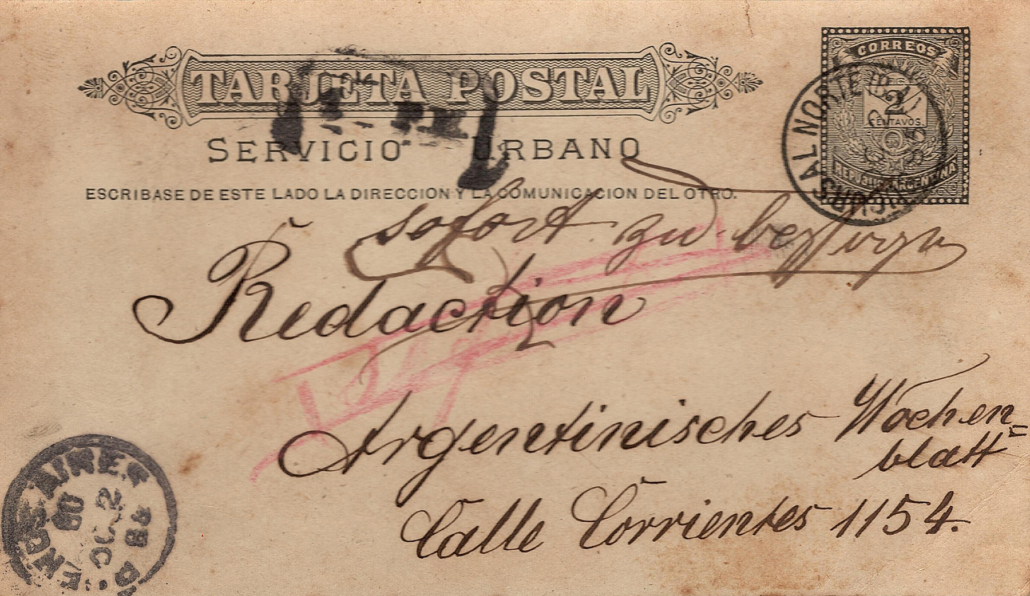 CORREOS
TARJETA POSTAL
2
CENTAVOS.
SERVICIO URBANO
REPUBLICA ARGENTINA
SUCURSAL NORTE (B.A.)
ESCRIBASE DE ESTE LADO LA DIRECCION Y LA COMUNICACION DEL OTRO.
sofort zu besorgen
Redaction
Argentinisches Wochen=
blatt
Calle Corrientes 1154.
BUENOS AIRES